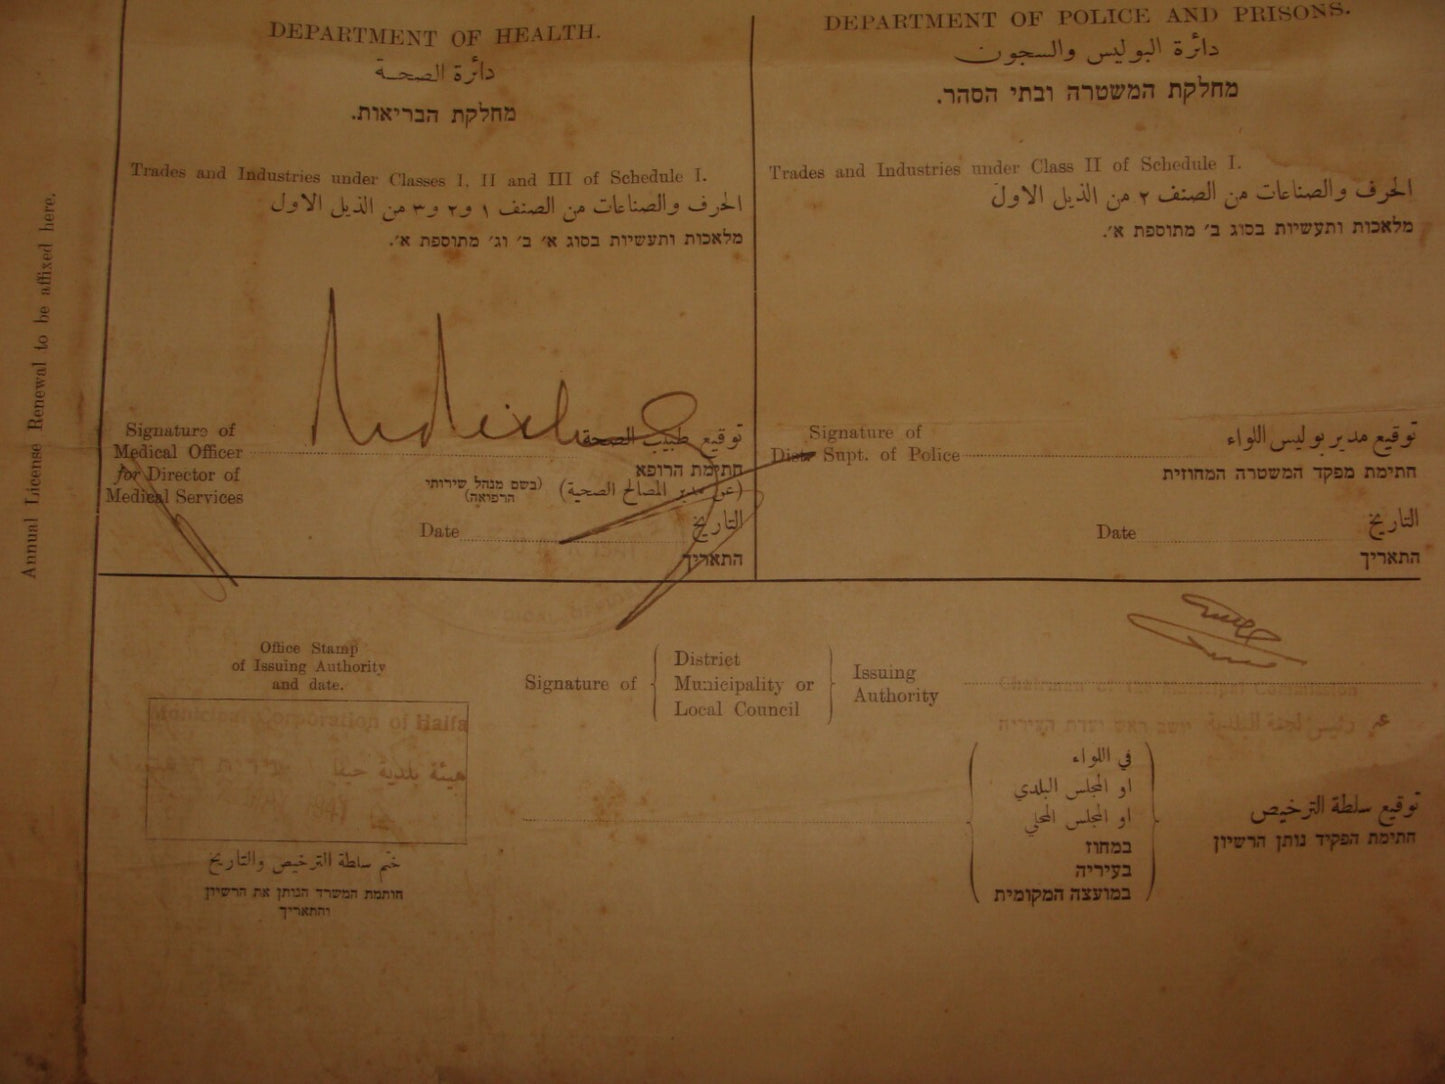 DEPARTMENT OF HEALTH.
دائرة الصحة
מחלקת הבריאות.
Trades and Industries under Classes I, II and III of Schedule I.
الحرف والصناعات من الصنف ١ و٢ و٣ من الذيل الاول
מלאכות ותעשיות בסוג א׳ ב׳ וג׳ מתוספת א׳.
Signature of
Medical Officer
for Director of
Medical Services
توقيع طبيب الصحة
חתימת הרופא
(عن مدير المصالح الصحية)
(בשם מנהל שירותי
הרפואה)
Date
التاريخ
התאריך
DEPARTMENT OF POLICE AND PRISONS.
دائرة البوليس والسجون
מחלקת המשטרה ובתי הסהר.
Trades and Industries under Class II of Schedule I.
الحرف والصناعات من الصنف ٢ من الذيل الاول
מלאכות ותעשיות בסוג ב׳ מתוספת א׳.
Signature of
Distr. Supt. of Police
توقيع مدير بوليس اللواء
חתימת מפקד המשטרה המחוזית
Date
التاريخ
התאריך
Annual License Renewal to be affixed here.
Office Stamp
of Issuing Authority
and date.
Municipal Corporation of Haifa
هيئة بلدية حيفا
ختم سلطة الترخيص والتاريخ
חותמת המשרד הנותן את הרשיון
והתאריך
Signature of
District
Municipality or
Local Council
Issuing
Authority
Chairman of the Municipal Commission
عن رئيس لجنة البلدية יושב ראש ועדת העיריה
في اللواء
او المجلس البلدي
او المجلس المحلي
במחוז
בעיריה
במועצה המקומית
توقيع سلطة الترخيص
חתימת הפקיד נותן הרשיון